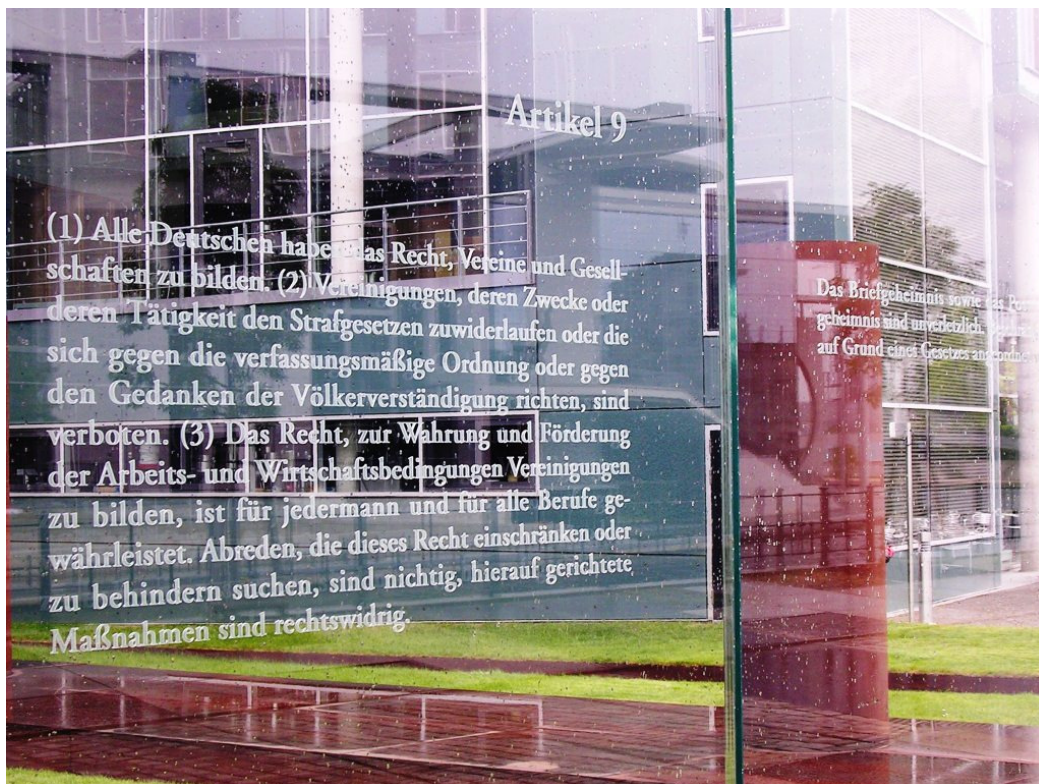 Artikel 9
(1) Alle Deutschen haben das Recht, Vereine und Gesell-
schaften zu bilden. (2) Vereinigungen, deren Zwecke oder
deren Tätigkeit den Strafgesetzen zuwiderlaufen oder die
sich gegen die verfassungsmäßige Ordnung oder gegen
den Gedanken der Völkerverständigung richten, sind
verboten. (3) Das Recht, zur Wahrung und Förderung
der Arbeits- und Wirtschaftsbedingungen Vereinigungen
zu bilden, ist für jedermann und für alle Berufe ge-
währleistet. Abreden, die dieses Recht einschränken oder
zu behindern suchen, sind nichtig, hierauf gerichtete
Maßnahmen sind rechtswidrig.
Das Briefgeheimnis sowie das
geheimnis sind unverletzlich.
auf Grund eines Gesetzes